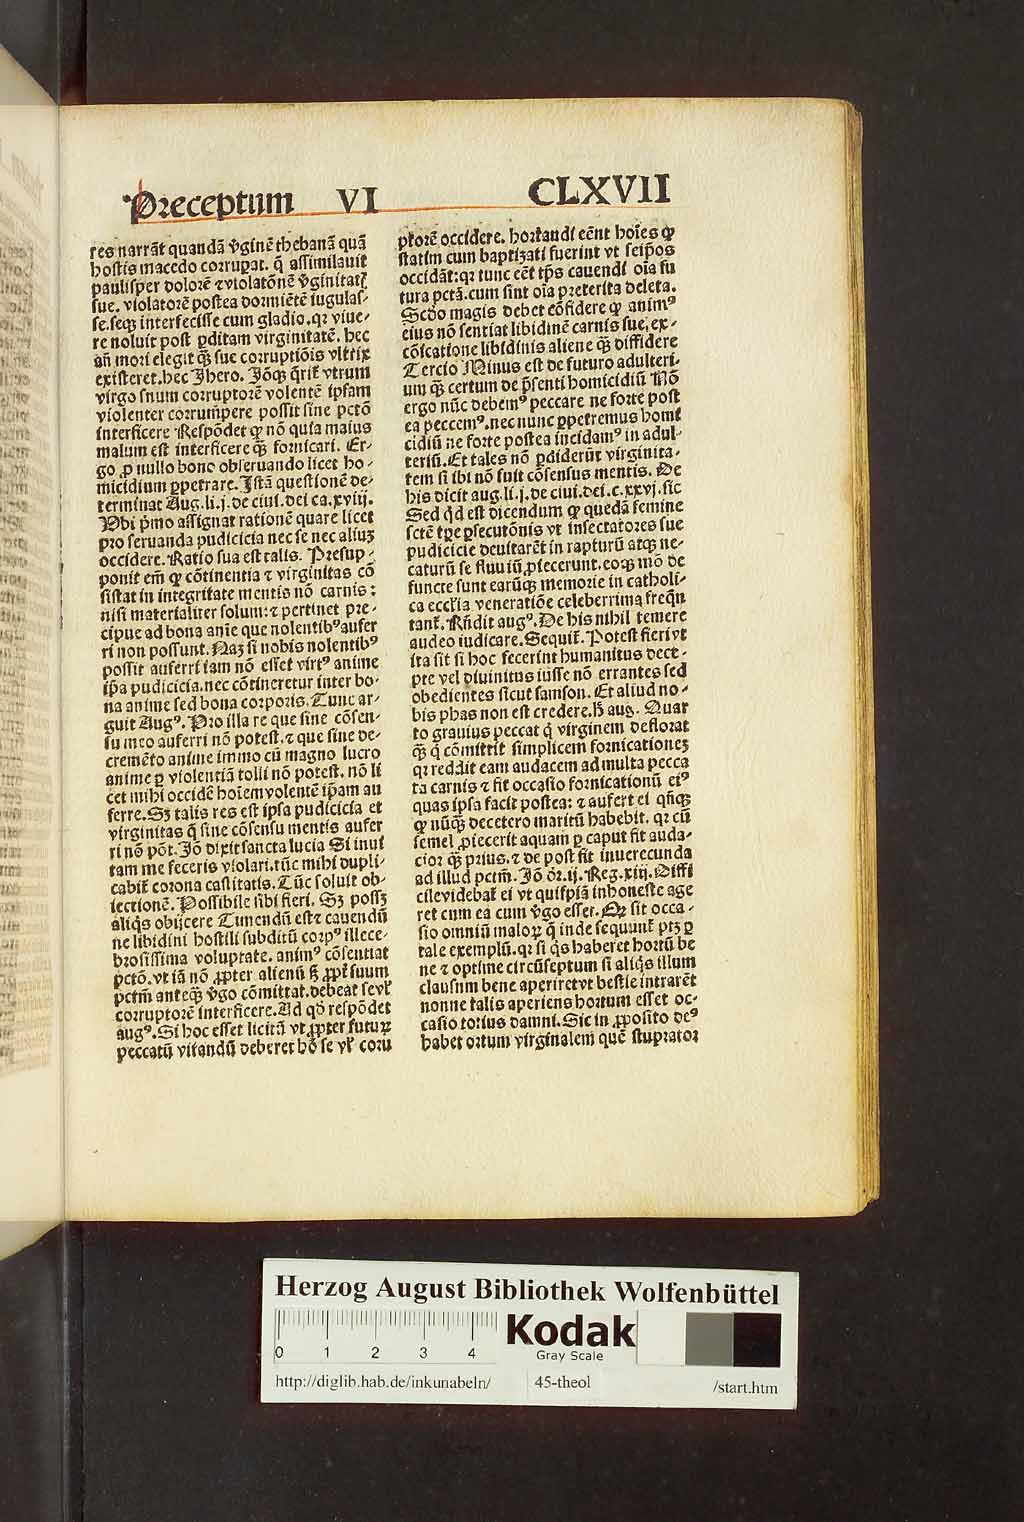 Preceptum VI CLXVII
res narrãt quandã ꝟginẽ thebanã quã
hostis macedo corrupat. q̃ assimilauit
paulisper dolorẽ ⁊violatõnẽ ꝟginitatꝭ
sue. violatorẽ postea dormiẽtẽ iugulas-
se.seqꝫ interfecisse cum gladio.qꝛ viue-
re noluit post ꝑditam virginitatẽ. hec
añ mori elegit qꝫ̃ sue corruptiõis vltrix
existeret.hec Jhero. Jõqꝫ q̃rit̃ vtrum
virgo suum corruptorẽ volentẽ ipsam
violenter corrum̃pere possit sine pctõ
interficere Respõdet ꝙ nõ quia maius
malum est interficere qꝫ̃ fornicari. Er-
go ꝓ nullo bono obseruando licet ho-
micidium ꝑpetrare. Jstã questionẽ de-
terminat Aug.li.j.de ciui.dei ca.xviij.
Vbi p̃mo assignat rationẽ quare licet
pro seruanda pudicicia nec se nec aliuꝫ
occidere. Ratio sua est talis. Presup-
ponit em̃ ꝙ cõtinentia ⁊ virginitas cõ
sistat in integritate mentis nõ carnis:
nisi materialiter solum:⁊ pertinet pre-
cipue ad bona anĩe que nolentibꝰ aufer
ri non possunt. Naꝫ si nobis nolentibꝰ
possit auferri iam nõ esset virtꝰ anime
ip̃a pudicicia.nec cõtineretur inter bo-
na anime sed bona corporis. Tunc ar-
guit Augꝰ. Pro illa re que sine cõsen-
su meo auferri nõ potest. ⁊ que sine de-
cremẽto anime immo cũ magno lucro
anime ꝑ violentiã tolli nõ potest. nõ li
cet mihi occidẽ hoĩem volentẽ ip̃am au
ferre. Sꝫ talis res est ipsa pudicicia et
virginitas q̃ sine cõsensu mentis aufer
ri nõ põt. Jõ dixit sancta lucia Si inui
tam me feceris violari. tũc mihi dupli-
cabit̃ corona castitatis. Tũc soluit ob-
iectionẽ. Possibile sibi fieri. Sꝫ possꝫ
aliq̃s obijcere Timendũ est⁊ cauendũ
ne libidini hostili subditũ corpꝰ illece-
brosissima voluptate. animꝰ cõsentiat
pctõ. vt iã nõ ꝓpter alienũ sꝫ ꝓpt̃ suum
pctm̃ anteqꝫ ꝟgo cõmittat. debeat se vl̃
corruptorẽ interficere. Ad qd̃ respõdet
augꝰ. Si hoc esset licitũ vt ꝓpter futurꝫ
peccatũ vitandũ deberet hõ se vl̃ corru
ptorẽ occidere. hortandi eẽnt hoĩes ꝙ
statim cum baptizati fuerint vt seip̃os
occidãt:qꝛ tunc eẽt tp̃s cauendi oĩa fu
tura pctã.cum sint oĩa preterita deleta.
Scd̃o magis debet cõfidere ꝙ animꝰ
eius nõ sentiat libidinẽ carnis sue, ex-
cõicatione libidinis aliene qꝫ̃ diffidere
Tercio Minus est de futuro adulteri-
um qꝫ̃ certum de p̃senti homicidiũ Nõ
ergo nũc debemꝰ peccare ne forte post
ea peccemꝰ.nec nunc ꝑpetremus homi
cidiũ ne forte postea incidamꝰ in adul-
teriũ. Et tales nõ ꝑdiderũt virginita-
tem si ibi nõ fuit cõsensus mentis. De
his dicit aug.li.j.de ciui.dei.c.xxvj. sic
Sed qd̃ est dicendum ꝙ quedã femine
scẽt tꝑe ꝑsecutõnis vt insectatores sue
pudicicie deuitarẽt in rapturũ atqꝫ ne-
caturũ se fluuiũ ꝓiecerunt.eoqꝫ mõ de
functe sunt earũqꝫ memorie in catholi-
ca eccl̃ia veneratiõe celeberrima freq̃n
tant̃. Rñdit augꝰ. De his nihil temere
audeo iudicare. Sequit̃. Potest fieri vt
ita sit si hoc fecerint humanitus dece-
pte vel diuinitus iusse nõ errantes sed
obedientes sicut samson. Et aliud no-
bis phas non est credere. hꝫ aug. Quar
to grauius peccat q̃ virginem deflorat
qꝫ̃ q̃ cõmittit simplicem fornicationeꝫ
qꝛ reddit eam audacem ad multa pecca
ta carnis ⁊ fit occasio fornicationũ eiꝰ
quas ipsa facit postea: ⁊ aufert ei qñqꝫ
ꝙ nũqꝫ decetero maritũ habebit. qꝛ cũ
semel ꝓiecerit aquam ꝑ caput fit auda-
cior qꝫ̃ prius.⁊ de post fit inuerecunda
ad illud pctm̃. Jõ dꝛ.ij. Reg.xiij. Diffi
cile videbat̃ ei vt quispiã inhoneste age
ret cum ea cum ꝟgo esset. Qꝛ sit occa-
sio omniũ maloꝝ q̃ inde sequunt̃ ptꝫ ꝑ
tale exemplũ.qꝛ si q̃s haberet hortũ be
ne ⁊ optime circũseptum si aliq̃s illum
clausum bene aperiret vt bestie intrarẽt
nonne talis aperiens hortum esset oc-
casio totius damni. Sic in ꝓposito deꝰ
habet ortum virginalem quẽ stuprator
Herzog August Bibliothek Wolfenbüttel
0 1 2 3 4
Kodak
Gray Scale
http://diglib.hab.de/inkunabeln/ 45-theol /start.htm